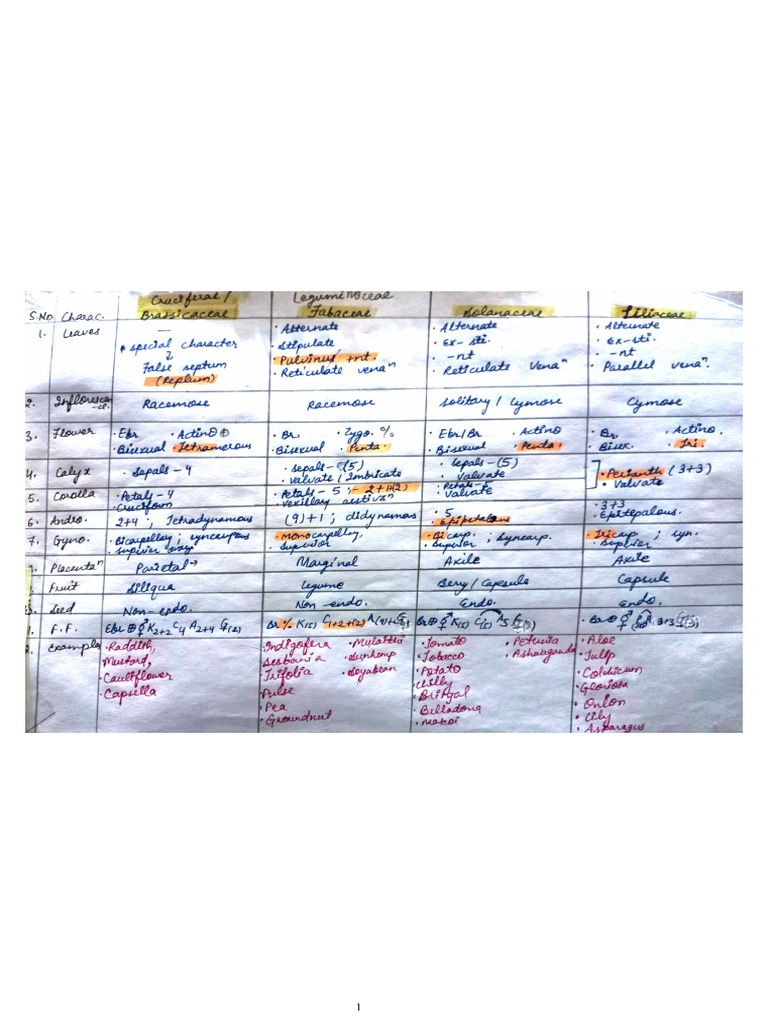 S.No. Charac. Cruciferal / Brassicaceae Leguminoceae Fabaceae Solanaceae Liliaceae
1. Leaves
—
* special character
↓
False septum
(Replum)
• Alternate
• Stipulate
• Pulvinus +nt.
• Reticulate venaⁿ
• Alternate
• Ex-sti.
• -nt
Reticulate Venaⁿ
• Alternate
Ex-sti.
• -nt
• Parallel venaⁿ.
2. Inflorescen-ce. Racemose Racemose Solitary / Cymose Cymose
3. Flower
• Ebr • Actino ⊕
Bisexual • Tetramerous
• Br. • Zygo. %
Bisexual • Penta.
Ebr/Br • Actino
• Bisexual • Penta.
• Br. • Actino.
• Bisex. • Tri.
4. Calyx
• Sepals-4
• sepals-(5)
• valvate / Imbricate
• Sepals-(5)
• Valvate
• Perianth (3+3)
• Valvate
5. Corolla
• Petals-4
• Cruciform
• Petals-5 :- 2+1+(2)
vexillary aestivaⁿ
• Petals-5
Valvate
6. Andro.
2+4 ; Tetradynamous
(9)+1 ; didynamous
• 5
• Epipetalous
• 3+3
• Epitepalous.
7. Gyno.
• Bicarpellary ; syncarpous
• superior ovary
• monocarpellary
• Superior
Bicarp. ; Syncarp.
• Superior
Tricarp. ; syn.
• Superior
Placentaⁿ Parietal Marginal Axile Axile
Fruit Siliqua Legume Bery / Capsule Capsule
Seed Non-endo. Non endo. Endo. Endo.
F.F. Ebr ⊕ ⚥ K₂₊₂ C₄ A₂₊₄ G₍₂₎ Br % K₍₅₎ C₁₊₂₊₍₂₎
Examples
• Raddish,
Mustard,
• Cauliflower
• Capsella
• Indigofera • Mulathhi
• Sesbania • Sunhemp
• Trifolia • Soyabean
• Pulse
• Pea
• Groundnut
• Tomato • Petunia
• Tobacco • Ashwaganda
• Potato
• Chilly
• Brinjal
• Belladona
• Aloe
• Tulp
• Colchicum
• Gloriosa
• Onion
• Lily
• Asparagus
1